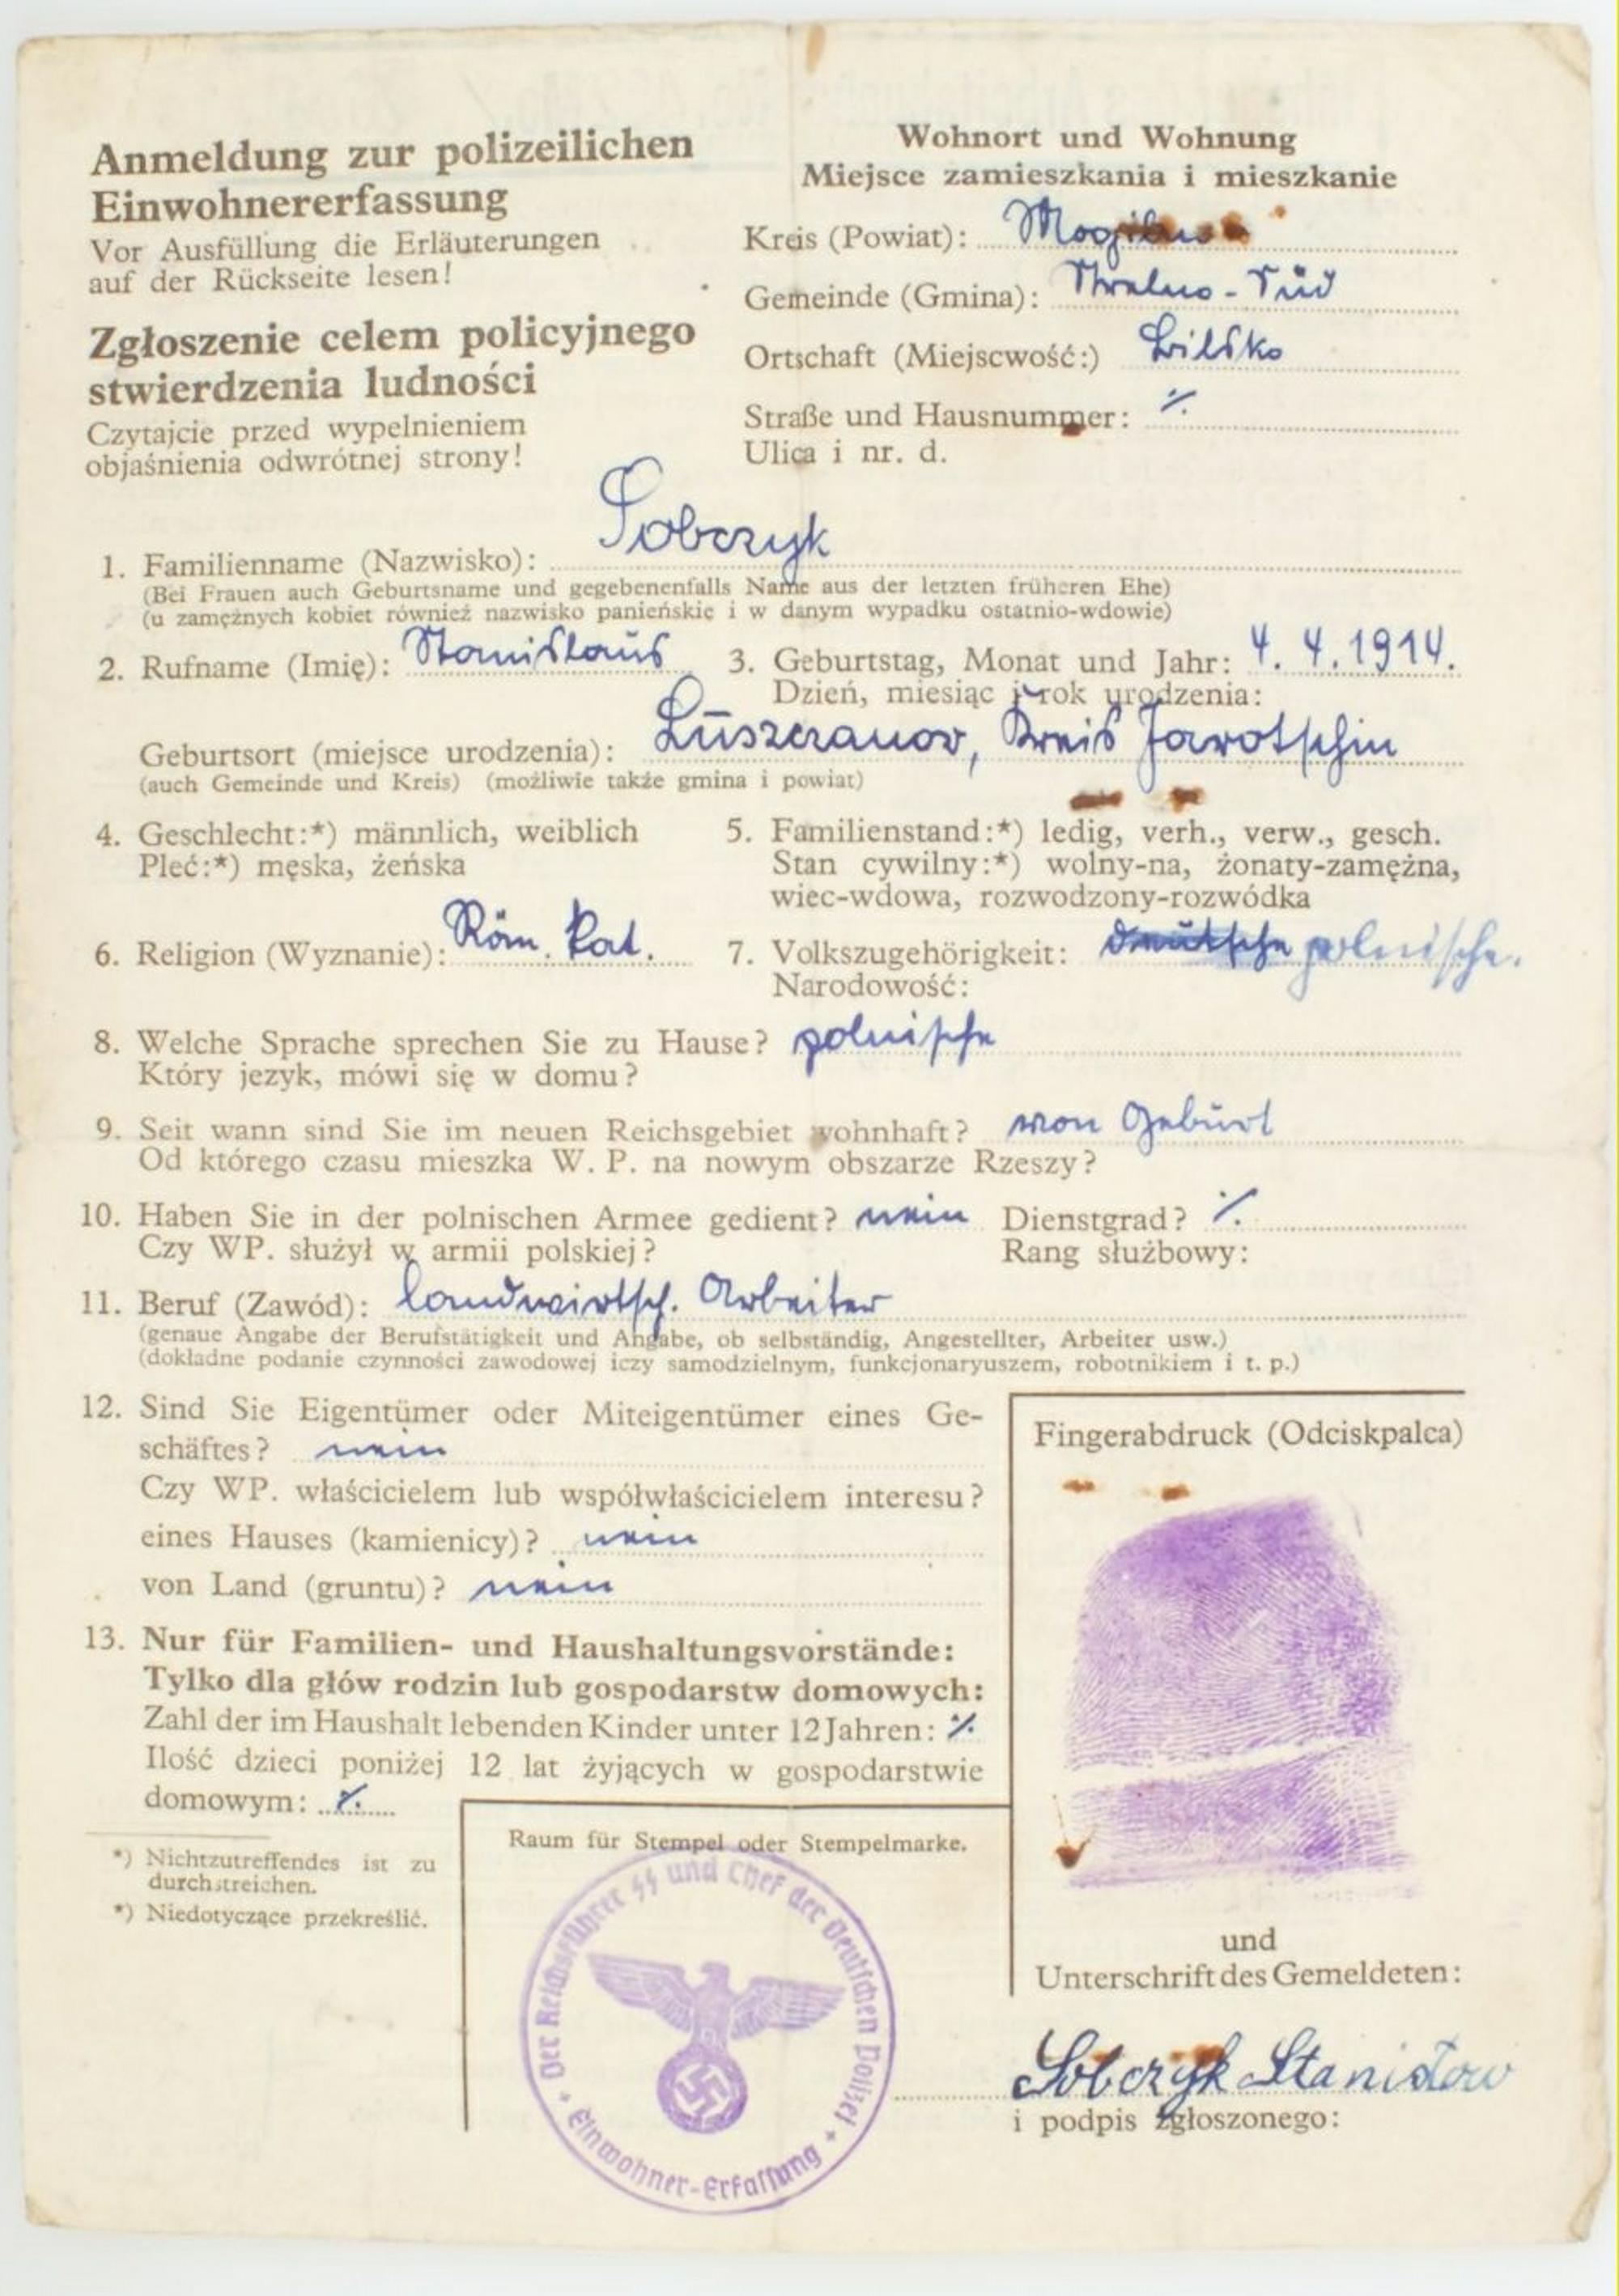 Anmeldung zur polizeilichen
Einwohnererfassung
Vor Ausfüllung die Erläuterungen
auf der Rückseite lesen!
Zgłoszenie celem policyjnego
stwierdzenia ludności
Czytajcie przed wypelnieniem
objaśnienia odwrótnej strony!
Wohnort und Wohnung
Miejsce zamieszkania i mieszkanie
Kreis (Powiat): Mogilno
Gemeinde (Gmina): -Süd
Ortschaft (Miejscwość:) Bilsko
Straße und Hausnummer: ⁒
Ulica i nr. d.
1. Familienname (Nazwisko): Sobczyk
(Bei Frauen auch Geburtsname und gegebenenfalls Name aus der letzten früheren Ehe)
(u zamężnych kobiet również nazwisko panieńskie i w danym wypadku ostatnio-wdowie)
2. Rufname (Imię): Stanislaus 3. Geburtstag, Monat und Jahr: 4. 4. 1914.
Dzień, miesiąc i rok urodzenia:
Geburtsort (miejsce urodzenia): Luszczanow, Kreis Jarotschin
(auch Gemeinde und Kreis) (możliwie także gmina i powiat)
4. Geschlecht:*) männlich, weiblich 5. Familienstand:*) ledig, verh., verw., gesch.
Pleć:*) męska, żeńska Stan cywilny:*) wolny-na, żonaty-zamężna,
wiec-wdowa, rozwodzony-rozwódka
6. Religion (Wyznanie): Röm. Kat. 7. Volkszugehörigkeit: deutsche polnische.
Narodowość:
8. Welche Sprache sprechen Sie zu Hause? polnische
Który jezyk, mówi się w domu?
9. Seit wann sind Sie im neuen Reichsgebiet wohnhaft? von Geburt
Od którego czasu mieszka W. P. na nowym obszarze Rzeszy?
10. Haben Sie in der polnischen Armee gedient? nein Dienstgrad? ⁒
Czy WP. służył w armii polskiej? Rang służbowy:
11. Beruf (Zawód): landwirtsch. Arbeiter
(genaue Angabe der Berufstätigkeit und Angabe, ob selbständig, Angestellter, Arbeiter usw.)
(dokładne podanie czynności zawodowej iczy samodzielnym, funkcjonaryuszem, robotnikiem i t. p.)
12. Sind Sie Eigentümer oder Miteigentümer eines Ge-
schäftes? nein
Czy WP. właścicielem lub współwłaścicielem interesu?
eines Hauses (kamienicy)? nein
von Land (gruntu)? nein
13. Nur für Familien- und Haushaltungsvorstände:
Tylko dla głów rodzin lub gospodarstw domowych:
Zahl der im Haushalt lebenden Kinder unter 12 Jahren: ⁒
Ilość dzieci poniżej 12 lat żyjących w gospodarstwie
domowym: ⁒
*) Nichtzutreffendes ist zu
durchstreichen.
*) Niedotyczące przekreślić.
Raum für Stempel oder Stempelmarke.
Der Reichsführer SS und Chef der Deutschen Polizei
Einwohner-Erfassung
Fingerabdruck (Odciskpalca)
und
Unterschrift des Gemeldeten:
Sobczyk Stanisław
i podpis zgłoszonego: